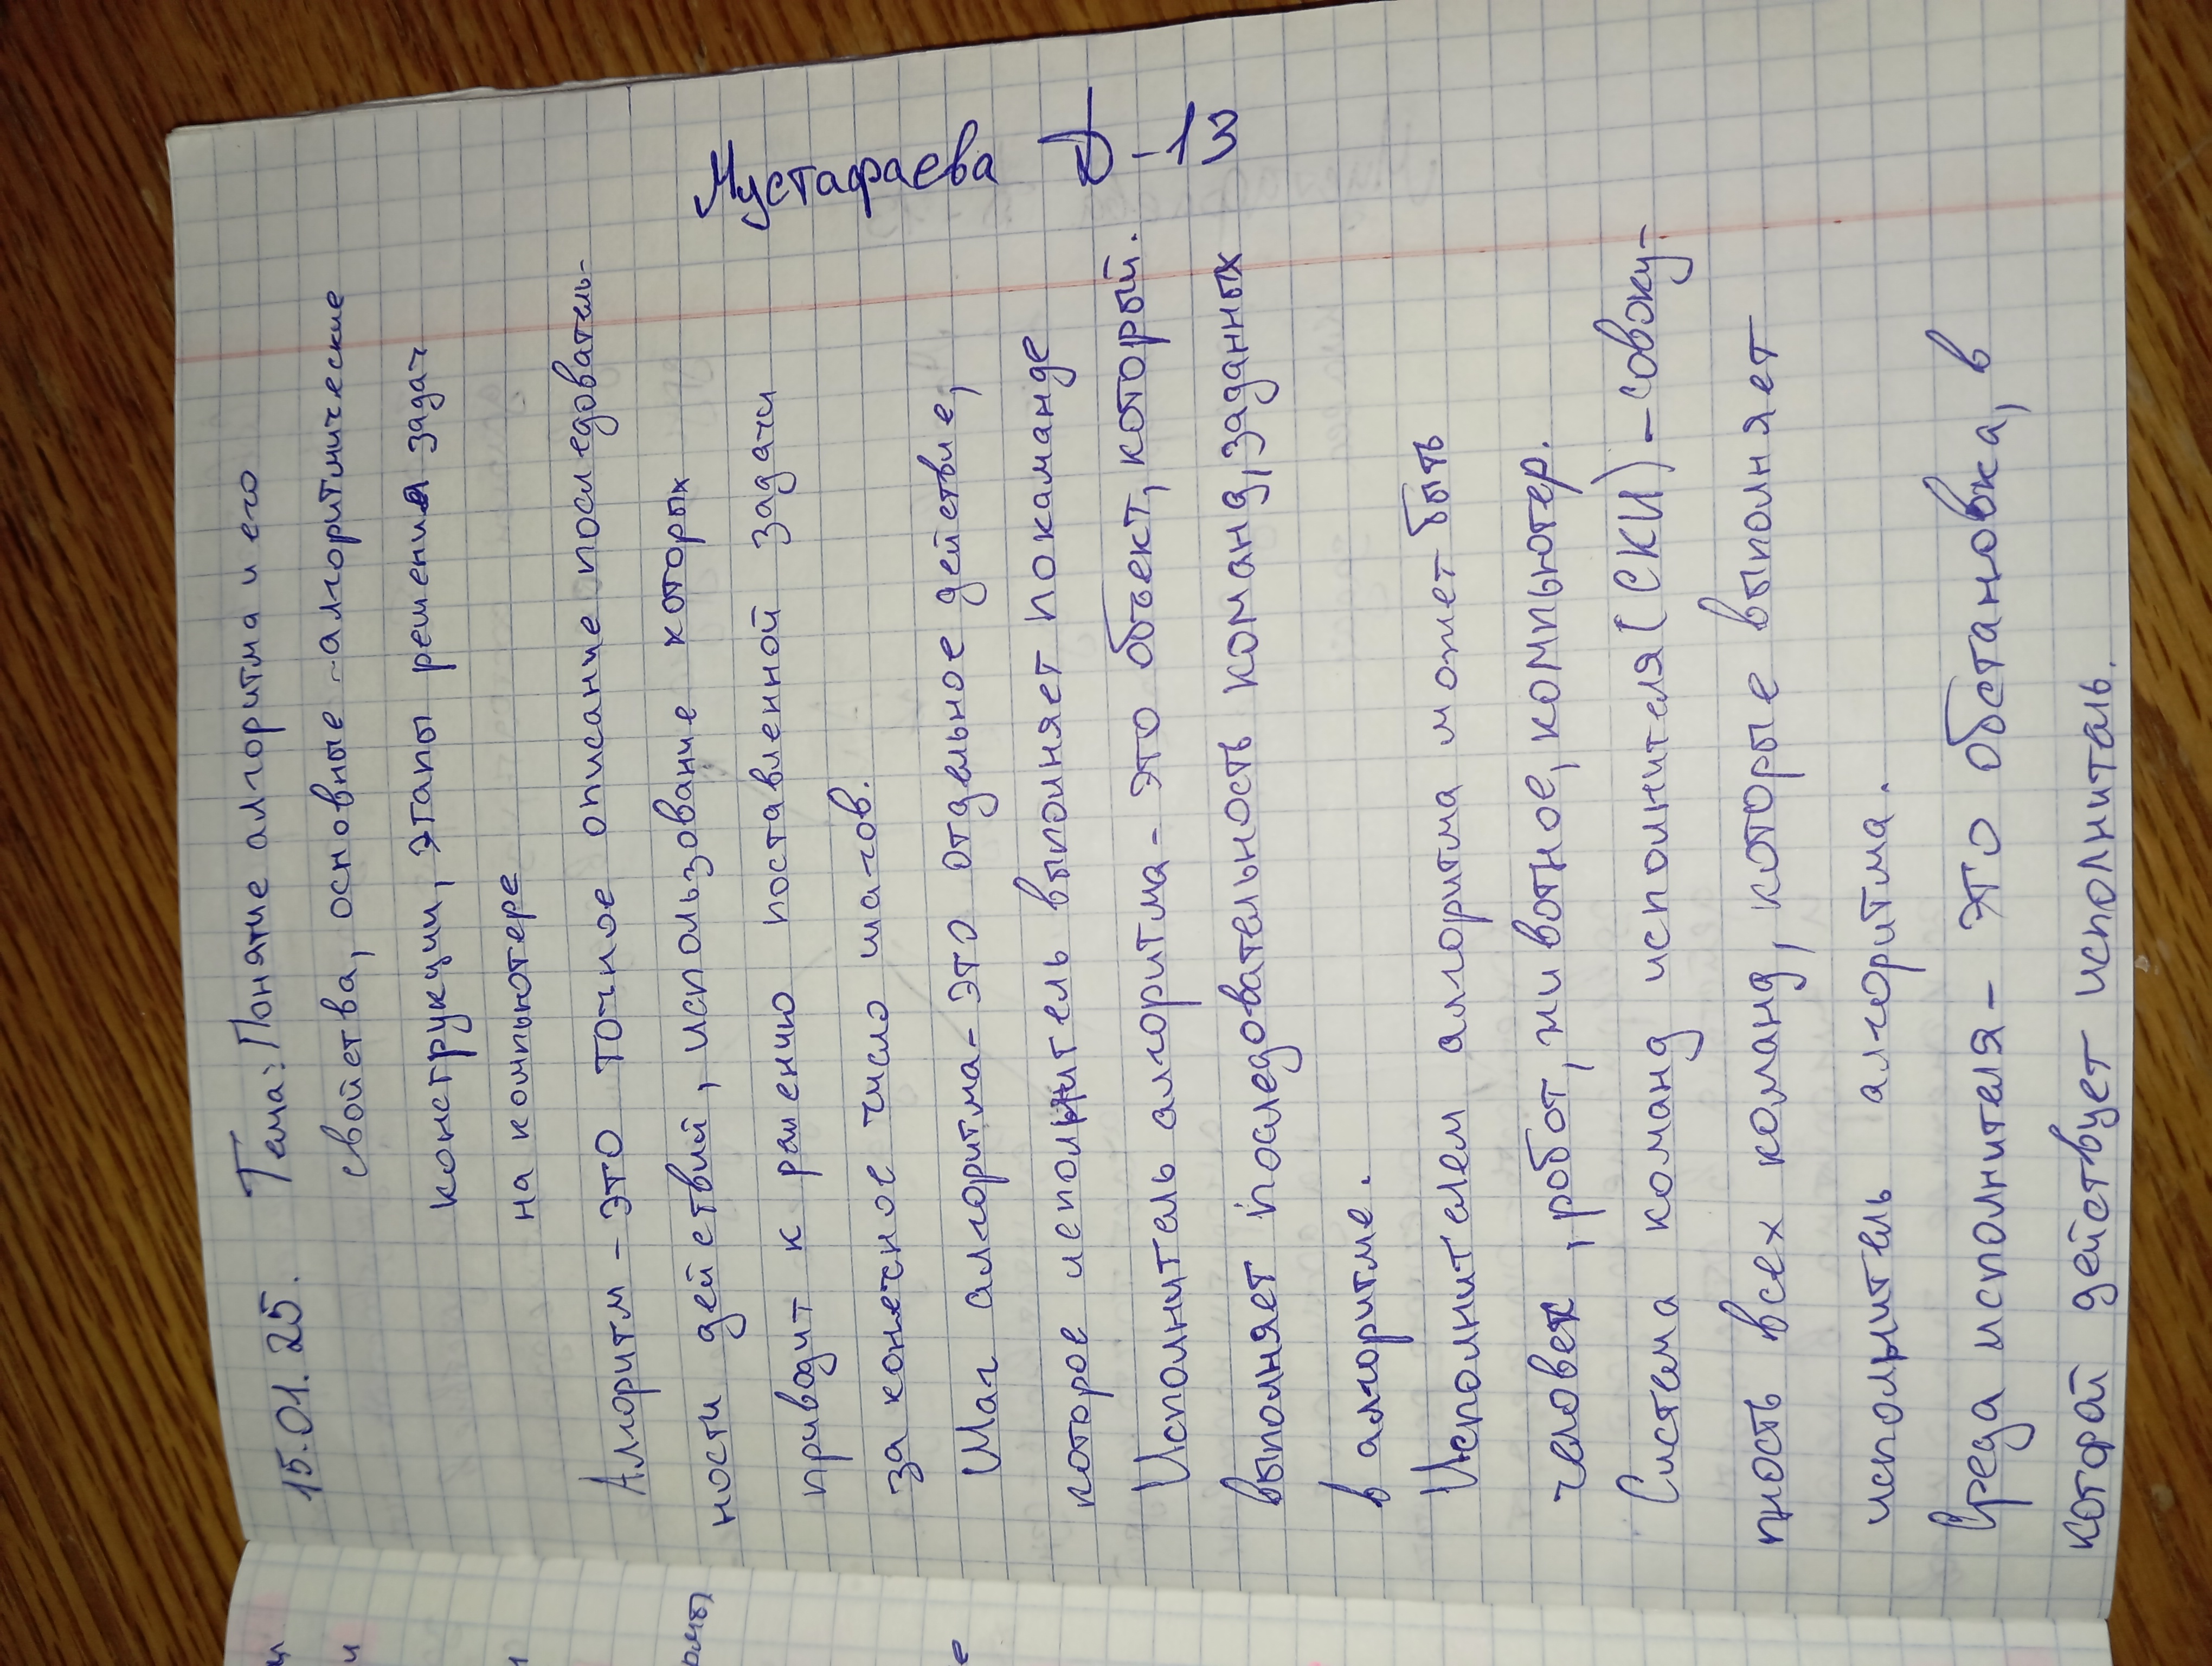 15.01.25. Тема: Понятие алгоритма и его
свойства, основные алгоритмические
конструкции, этапы решения задач
на компьютере
Алгоритм - это точное описание последователь-
ности действий, использование которых
приводит к решению поставленной задачи
за конечное число шагов.
Шаг алгоритма - это отдельное действие,
которое исполнитель выполняет покаманде
Исполнитель алгоритма - это объект, который.
выполняет последовательность команд, заданных
в алгоритме.
Исполнителем алгоритма может быть
человек, робот, животное, компьютер.
Система команд исполнителя (СКИ) - совоку-
пность всех команд, которые выполняет
исполнитель алгоритма.
Среда исполнителя - это обстановка, в
которой действует исполнитель.
Мустафаева Д-1